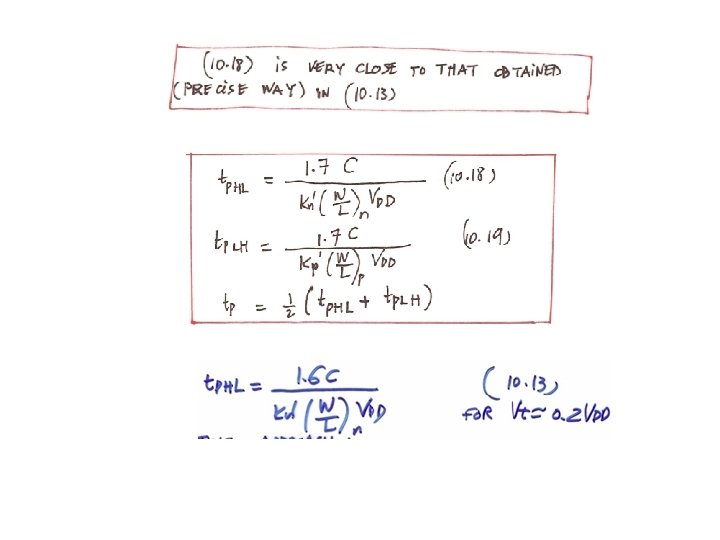 (10.18) is VERY CLOSE TO THAT OBTAINED
(PRECISE WAY) IN (10.13)
tPHL = 1.7 C / Kn'(W/L)n VDD (10.18)
tPLH = 1.7 C / Kp'(W/L)p VDD (10.19)
tp = 1/2 (tPHL + tPLH)
tPHL = 1.6C / Kn'(W/L)n VDD (10.13)
FOR Vt≈0.2VDD